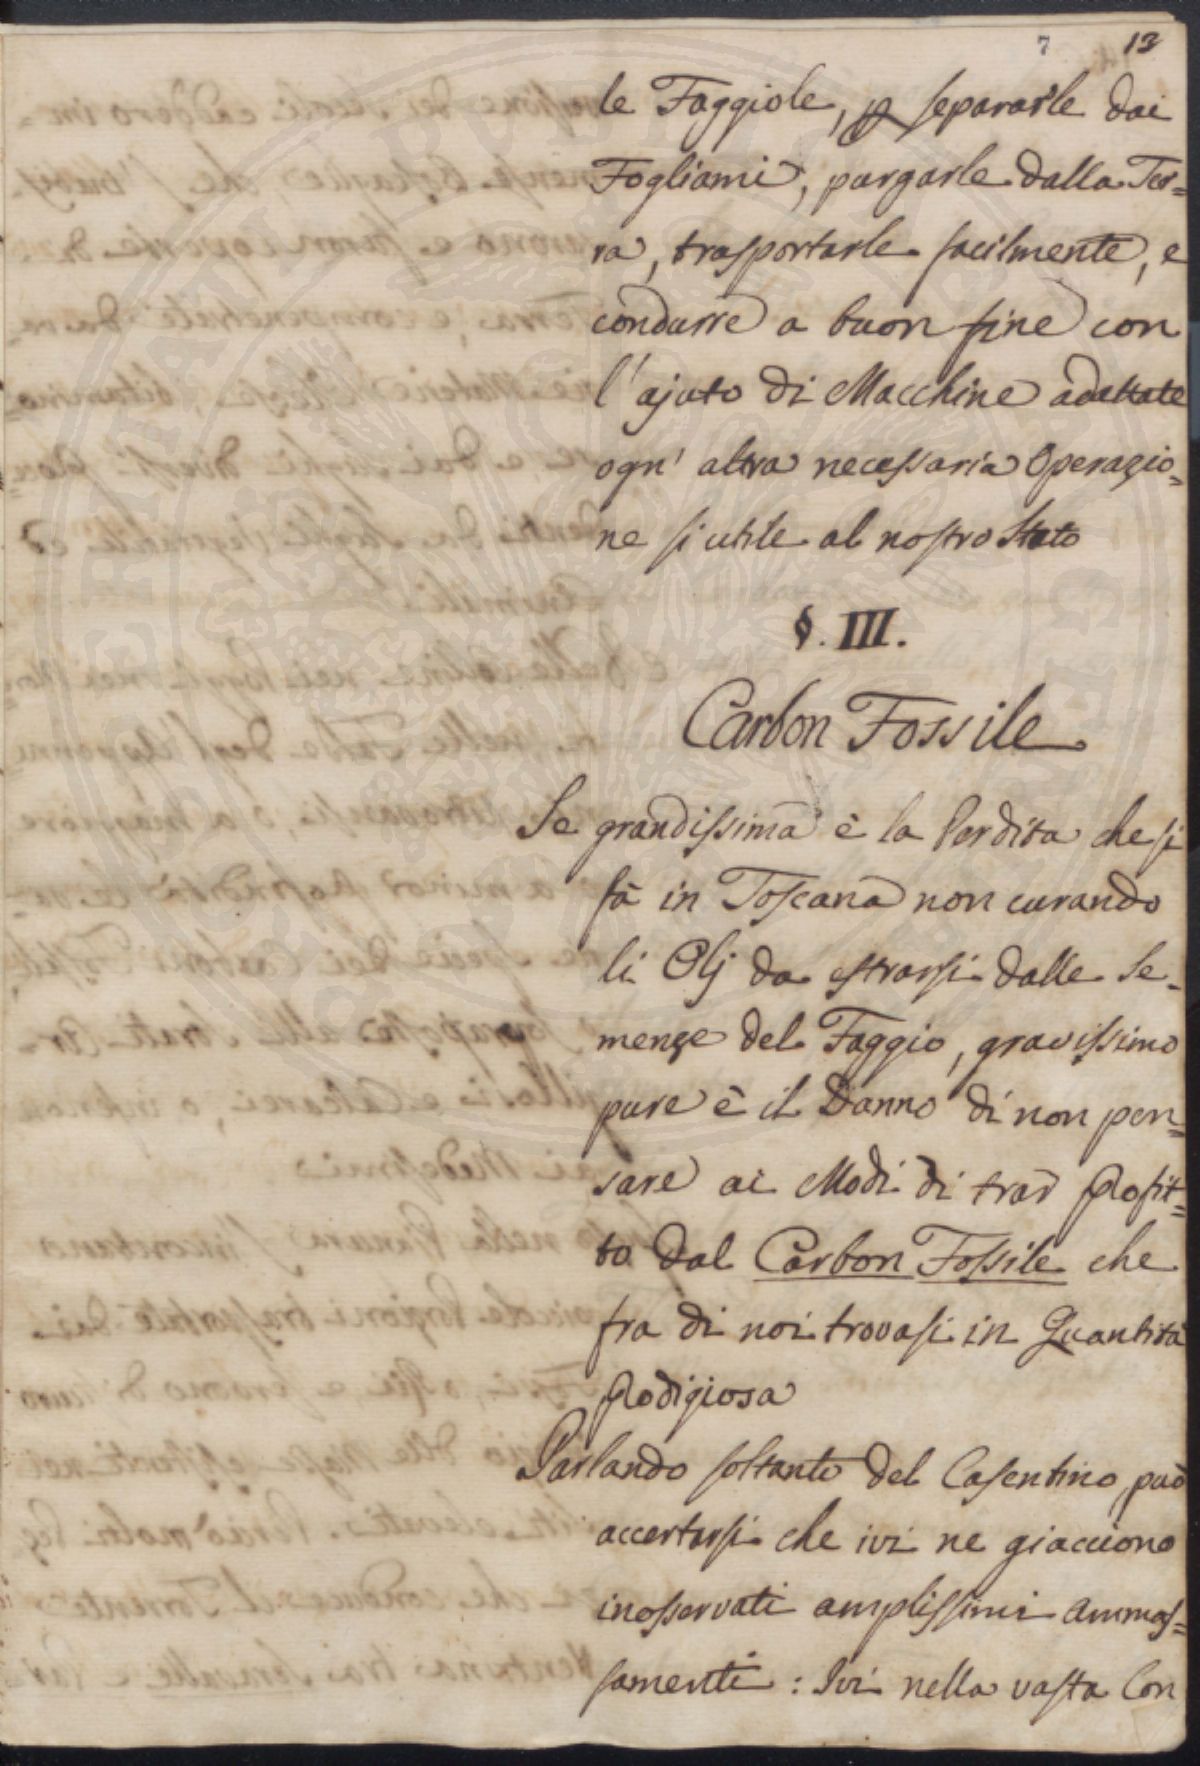 7 13
le Faggiole, p separarle dai
Fogliami, purgarle dalla Ter=
ra, trasportarle facilmente, e
condurre a buon fine con
l'ajuto di Macchine adattate
ogn' altra necessaria Operazio=
ne si utile al nostro Stato
§. III.
Carbon Fossile
Se grandissima è la Perdita che si
fà in Toscana non curando
li Olj da estrarsi dalle Se=
menze del Faggio, gravissimo
pure è il Danno di non pen=
sare ai Modi di trar Profit=
to dal Carbon Fossile che
fra di noi trovasi in Quantità
Prodigiosa
Parlando soltanto del Casentino, può
accertarsi che ivi ne giacciono
inosservati amplissimi Ammas=
samenti: Ivi nella vasta Con